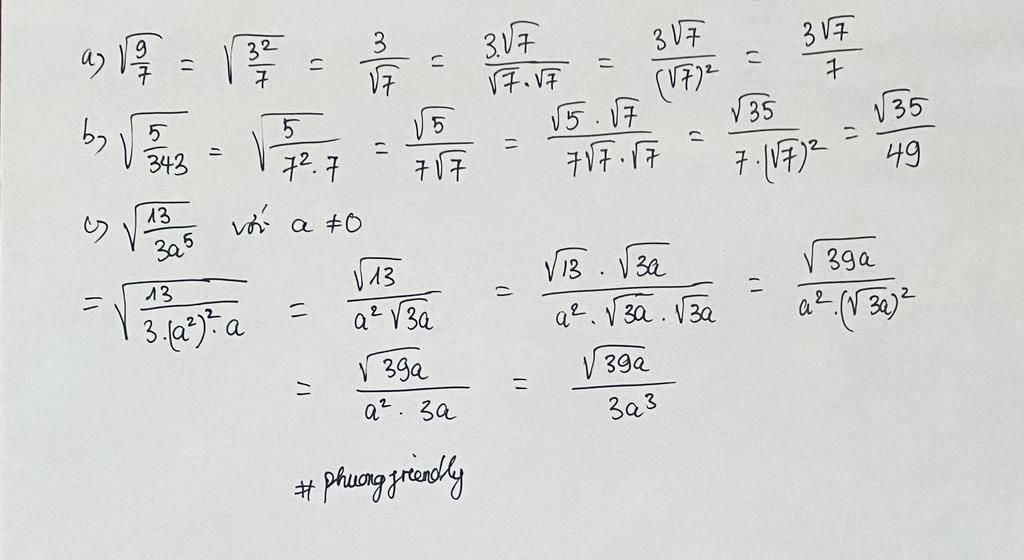 a) √(9/7) = √(3²/7) = 3/√7 = 3.√7/(√7.√7) = 3√7/(√7)² = 3√7/7
b) √(5/343) = √(5/(7².7)) = √5/(7√7) = √5.√7/(7√7.√7) = √35/(7.(√7)²) = √35/49
c) √(13/(3a⁵)) với a ≠ 0
= √(13/(3.(a²)².a)) = √13/(a²√3a) = √13.√3a/(a².√3a.√3a) = √39a/(a².(√3a)²)
= √39a/(a².3a) = √39a/(3a³)
# phuongfriendly